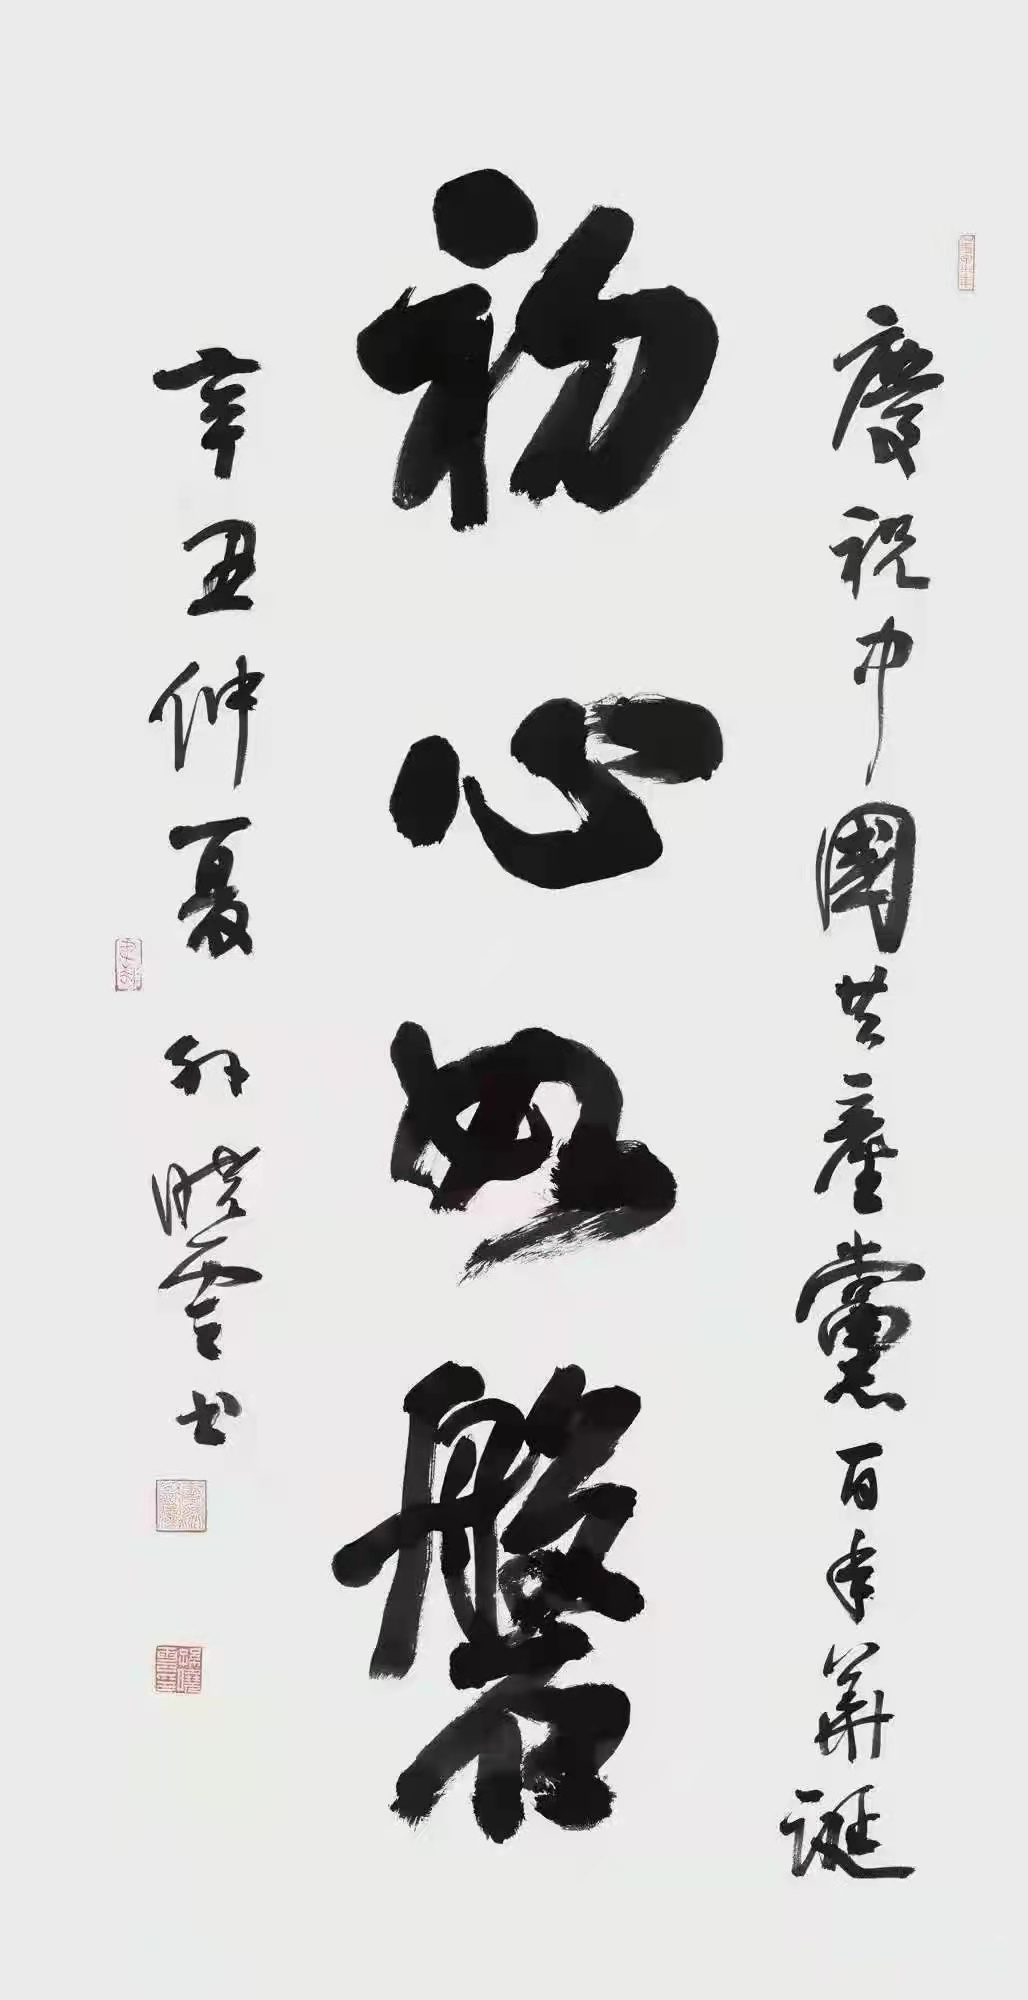 慶祝中國共產黨百年華誕
初心如磐
辛丑仲夏 孫曉雲書